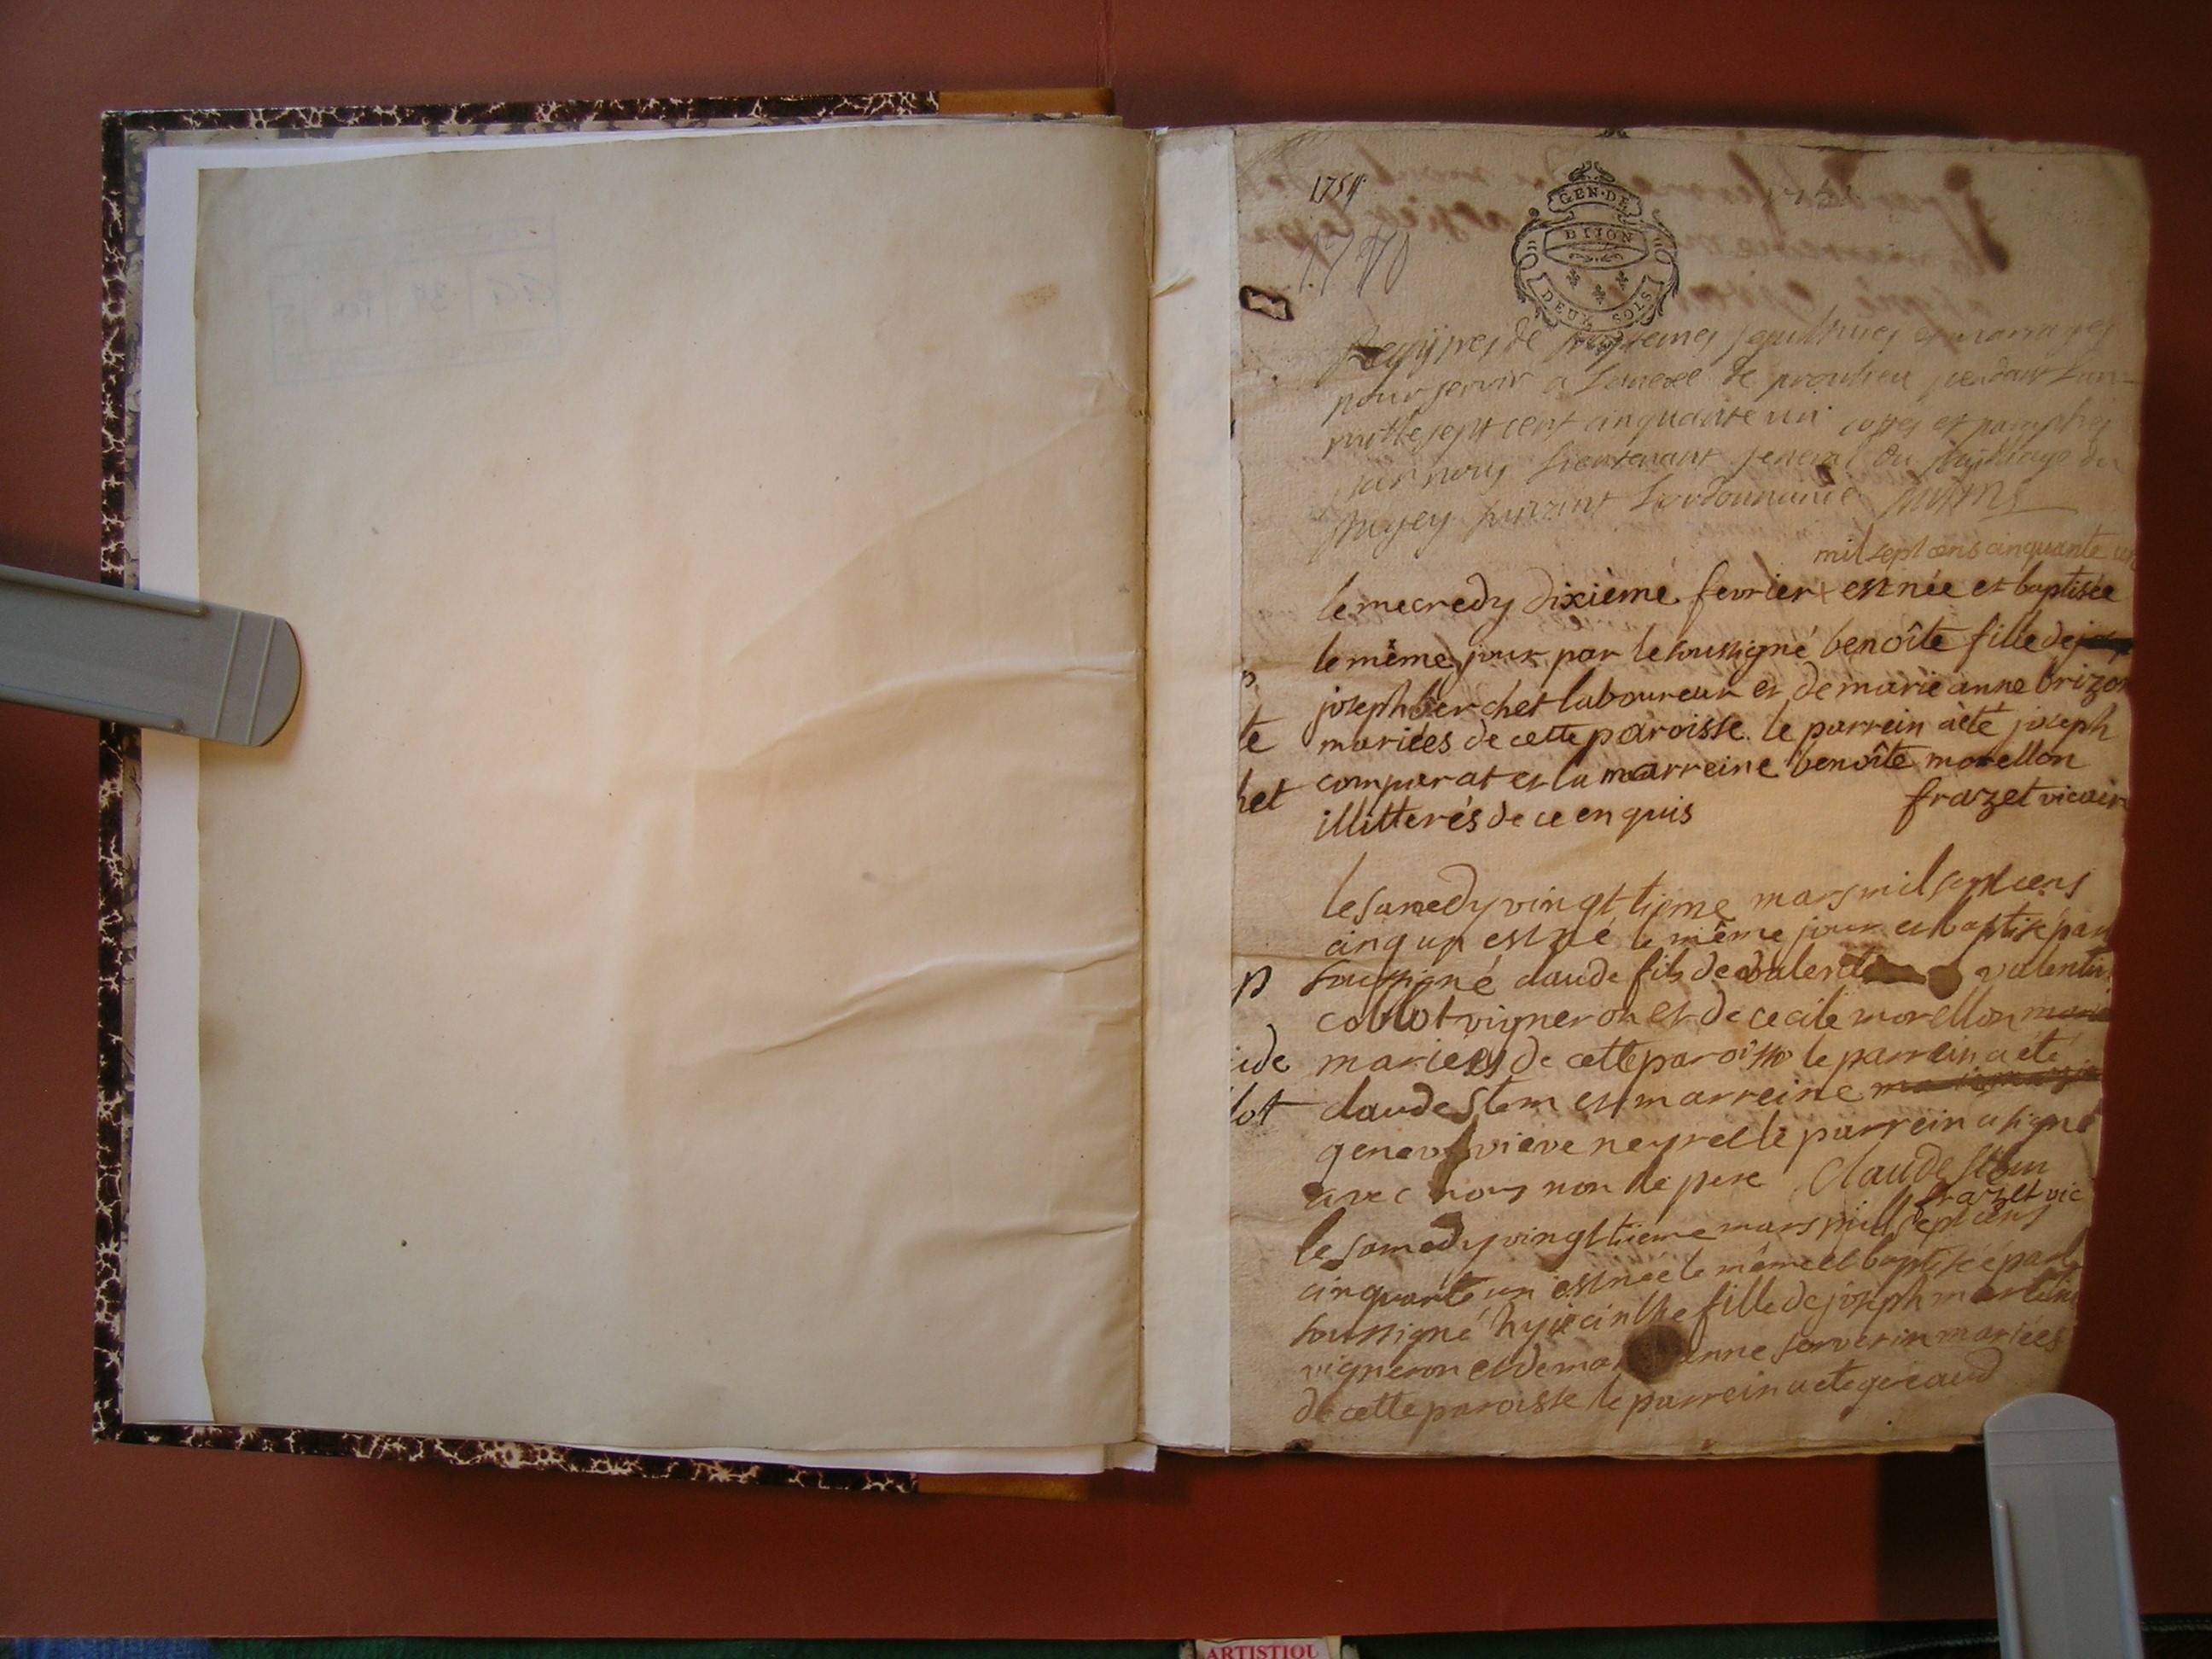 1751
1740
GEN·DE
DIJON
DEUX SOLS
Regijtres de baptemes sepultures et mariages
pour servir a Lanexe de proulieu pendant Lan
mille sept cent cinquante un cottes et paraphes
par nous Lieutenant general du Bailliage du
Bugey suivant Lordonnance
mil sept cens cinquante un
le mecredy dixième fevrier est née et baptisée
le même jour par le soussigné benoîte fille de
joseph berchet laboureur et de marie anne brizon
te mariées de cette paroisse le parrein àèté joseph
het comparat et la marreine benoîte morellon
illitterés de ce enquis frazet vicair
le samedy vingttieme mars mil sept cens
cinq un est né le même jour et baptisé par
B soussigné claude fils de valentin valentin
collot vigneron et de cecile morellon marie
ude mariées de cette paroisse le parrein a été
lot claude Stem et marreine
genevieve neyret le parrein a signé
avec nous non le pere Claude Stem
frazet vic
le samedy vingttieme mars mill sept cens
cinquante un est née le même et baptisée par le
soussigné hyiacinthe fille de joseph martin
vigneron et de mar anne serverin mariées
de cette paroisse le parrein a ete gereaud
ARTISTIQU